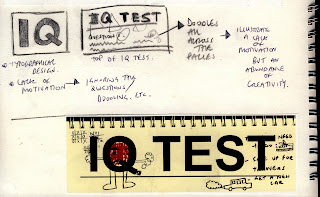 IQ
IQ TEST
QUESTION 1
TOP OF IQ TEST.
DOODLES
ALL
ACROSS
THE
PAGES
ILLUSTRATE
A LACK OF
MOTIVATION
BUT AN
ABUNDANCE
OF
CREATIVITY.
TYPOGRAPHICAL
DESIGN.
LACK OF
MOTIVATION
IGNORING THE
QUESTIONS,
DOODLING, ETC.
IQ TEST
NEED
TO
UP FOR
CAR